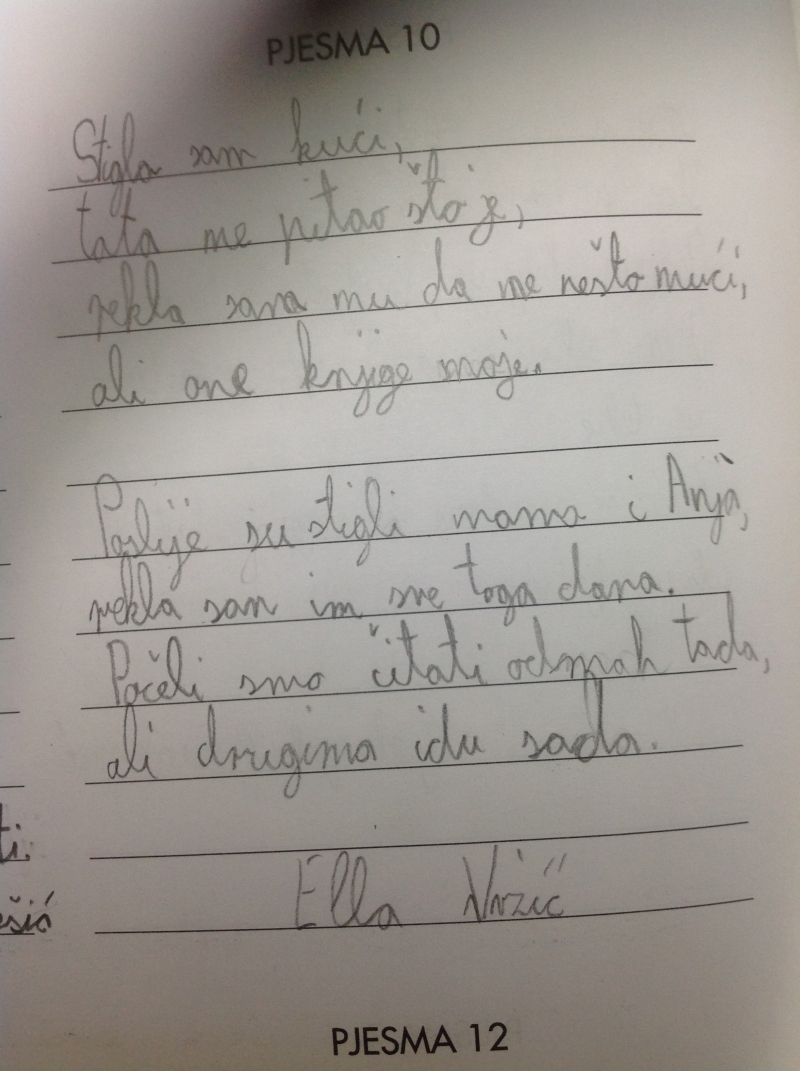 PJESMA 10
Stigla sam kući,
tata me pitao što je,
rekla sam mu da me nešto mući,
ali one knjige moje.
Poslije su stigli mama i Anja,
rekla sam im sve toga dana.
Počeli smo čitati odmah tada,
ali drugima idu sada.
ti.
ešić
Ella
PJESMA 12